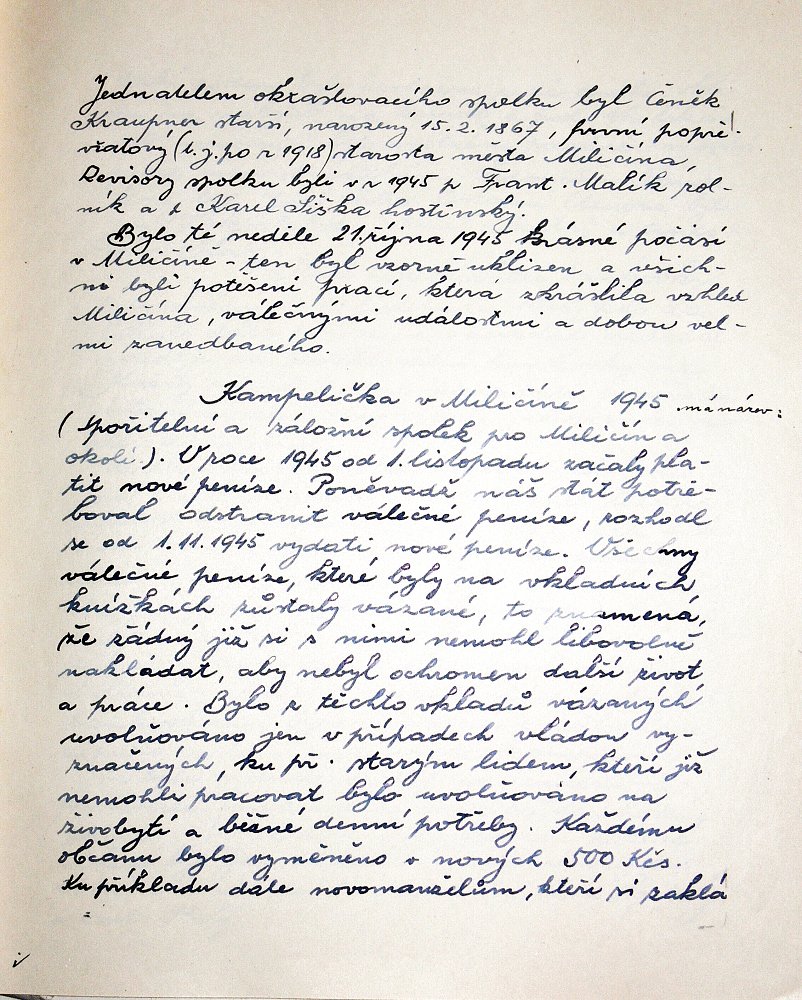 Jednatelem okrašlovacího spolku byl Čeněk
Kraupner starší, narozený 15.2.1867, první popře-
vratový (t.j. po r 1918) starosta města Miličína,
Revisory spolku byli v r 1945 p Frant. Malík rol-
ník a p Karel Šiška hostinský.
Bylo té neděle 21. října 1945 krásné počasí
v Miličíně - ten byl vzorně uklizen a všich-
ni byli potěšeni prací, která zkrášlila vzhled
Miličína, válečnými událostmi a dobou vel-
mi zanedbaného.
Kampelička v Miličíně 1945 má název:
(spořitelní a záložní spolek pro Miličín a
okolí.). V roce 1945 od 1. listopadu začaly pla-
tit nové peníze. Poněvadž náš stát potře-
boval odstranit válečné peníze, rozhodl
se od 1.11.1945 vydati nové peníze. Všechny
válečné peníze, které byly na vkladních
knížkách zůstaly vázané, to znamená,
že žádný již si s nimi nemohl libovolně
nakládat, aby nebyl ochromen další život
a práce. Bylo z těchto vkladů vázaných
uvolňováno jen v případech vládou vy-
značených, ku př. starým lidem, kteří již
nemohli pracovat bylo uvolňováno na
živobytí a běžné denní potřeby. Každému
občanu bylo vyměněno v nových 500 Kčs.
Ku příkladu dále novomanželům, kteří si zaklá